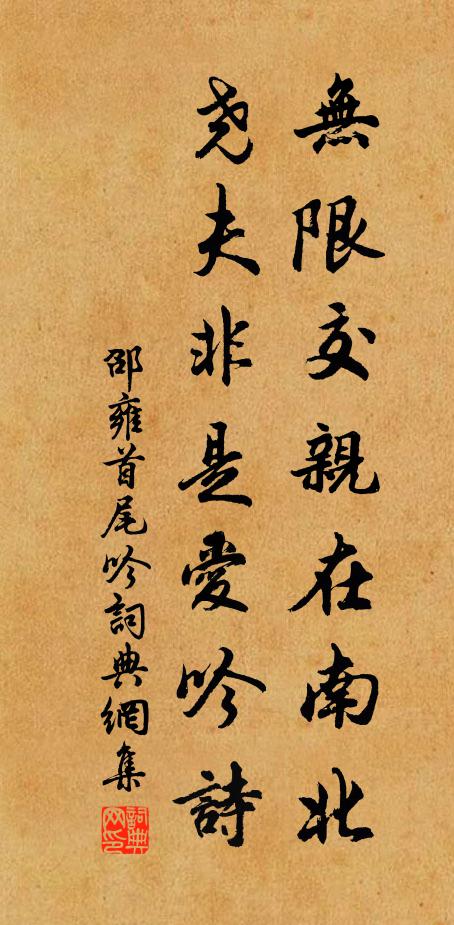 無限交親在南北
尧夫非是愛吟詩
邵雍首尾吟詞典網集
詞典网印